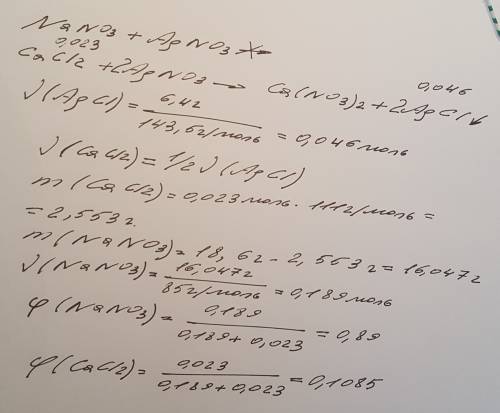 NaNO3 + AgNO3 ↛
0,023 0,046
CaCl2 + 2AgNO3 → Ca(NO3)2 + 2AgCl↓
ν(AgCl) = 6,4г / 143,5г/моль = 0,046 моль
ν(CaCl2) = 1/2 ν(AgCl)
m(CaCl2) = 0,023 моль · 111г/моль =
= 2,553г.
m(NaNO3) = 18,6г - 2,553г = 16,047г
ν(NaNO3) = 16,047г / 85г/моль = 0,189 моль
φ(NaNO3) = 0,189 / 0,189 + 0,023 = 0,89
φ(CaCl2) = 0,023 / 0,189 + 0,023 = 0,1085